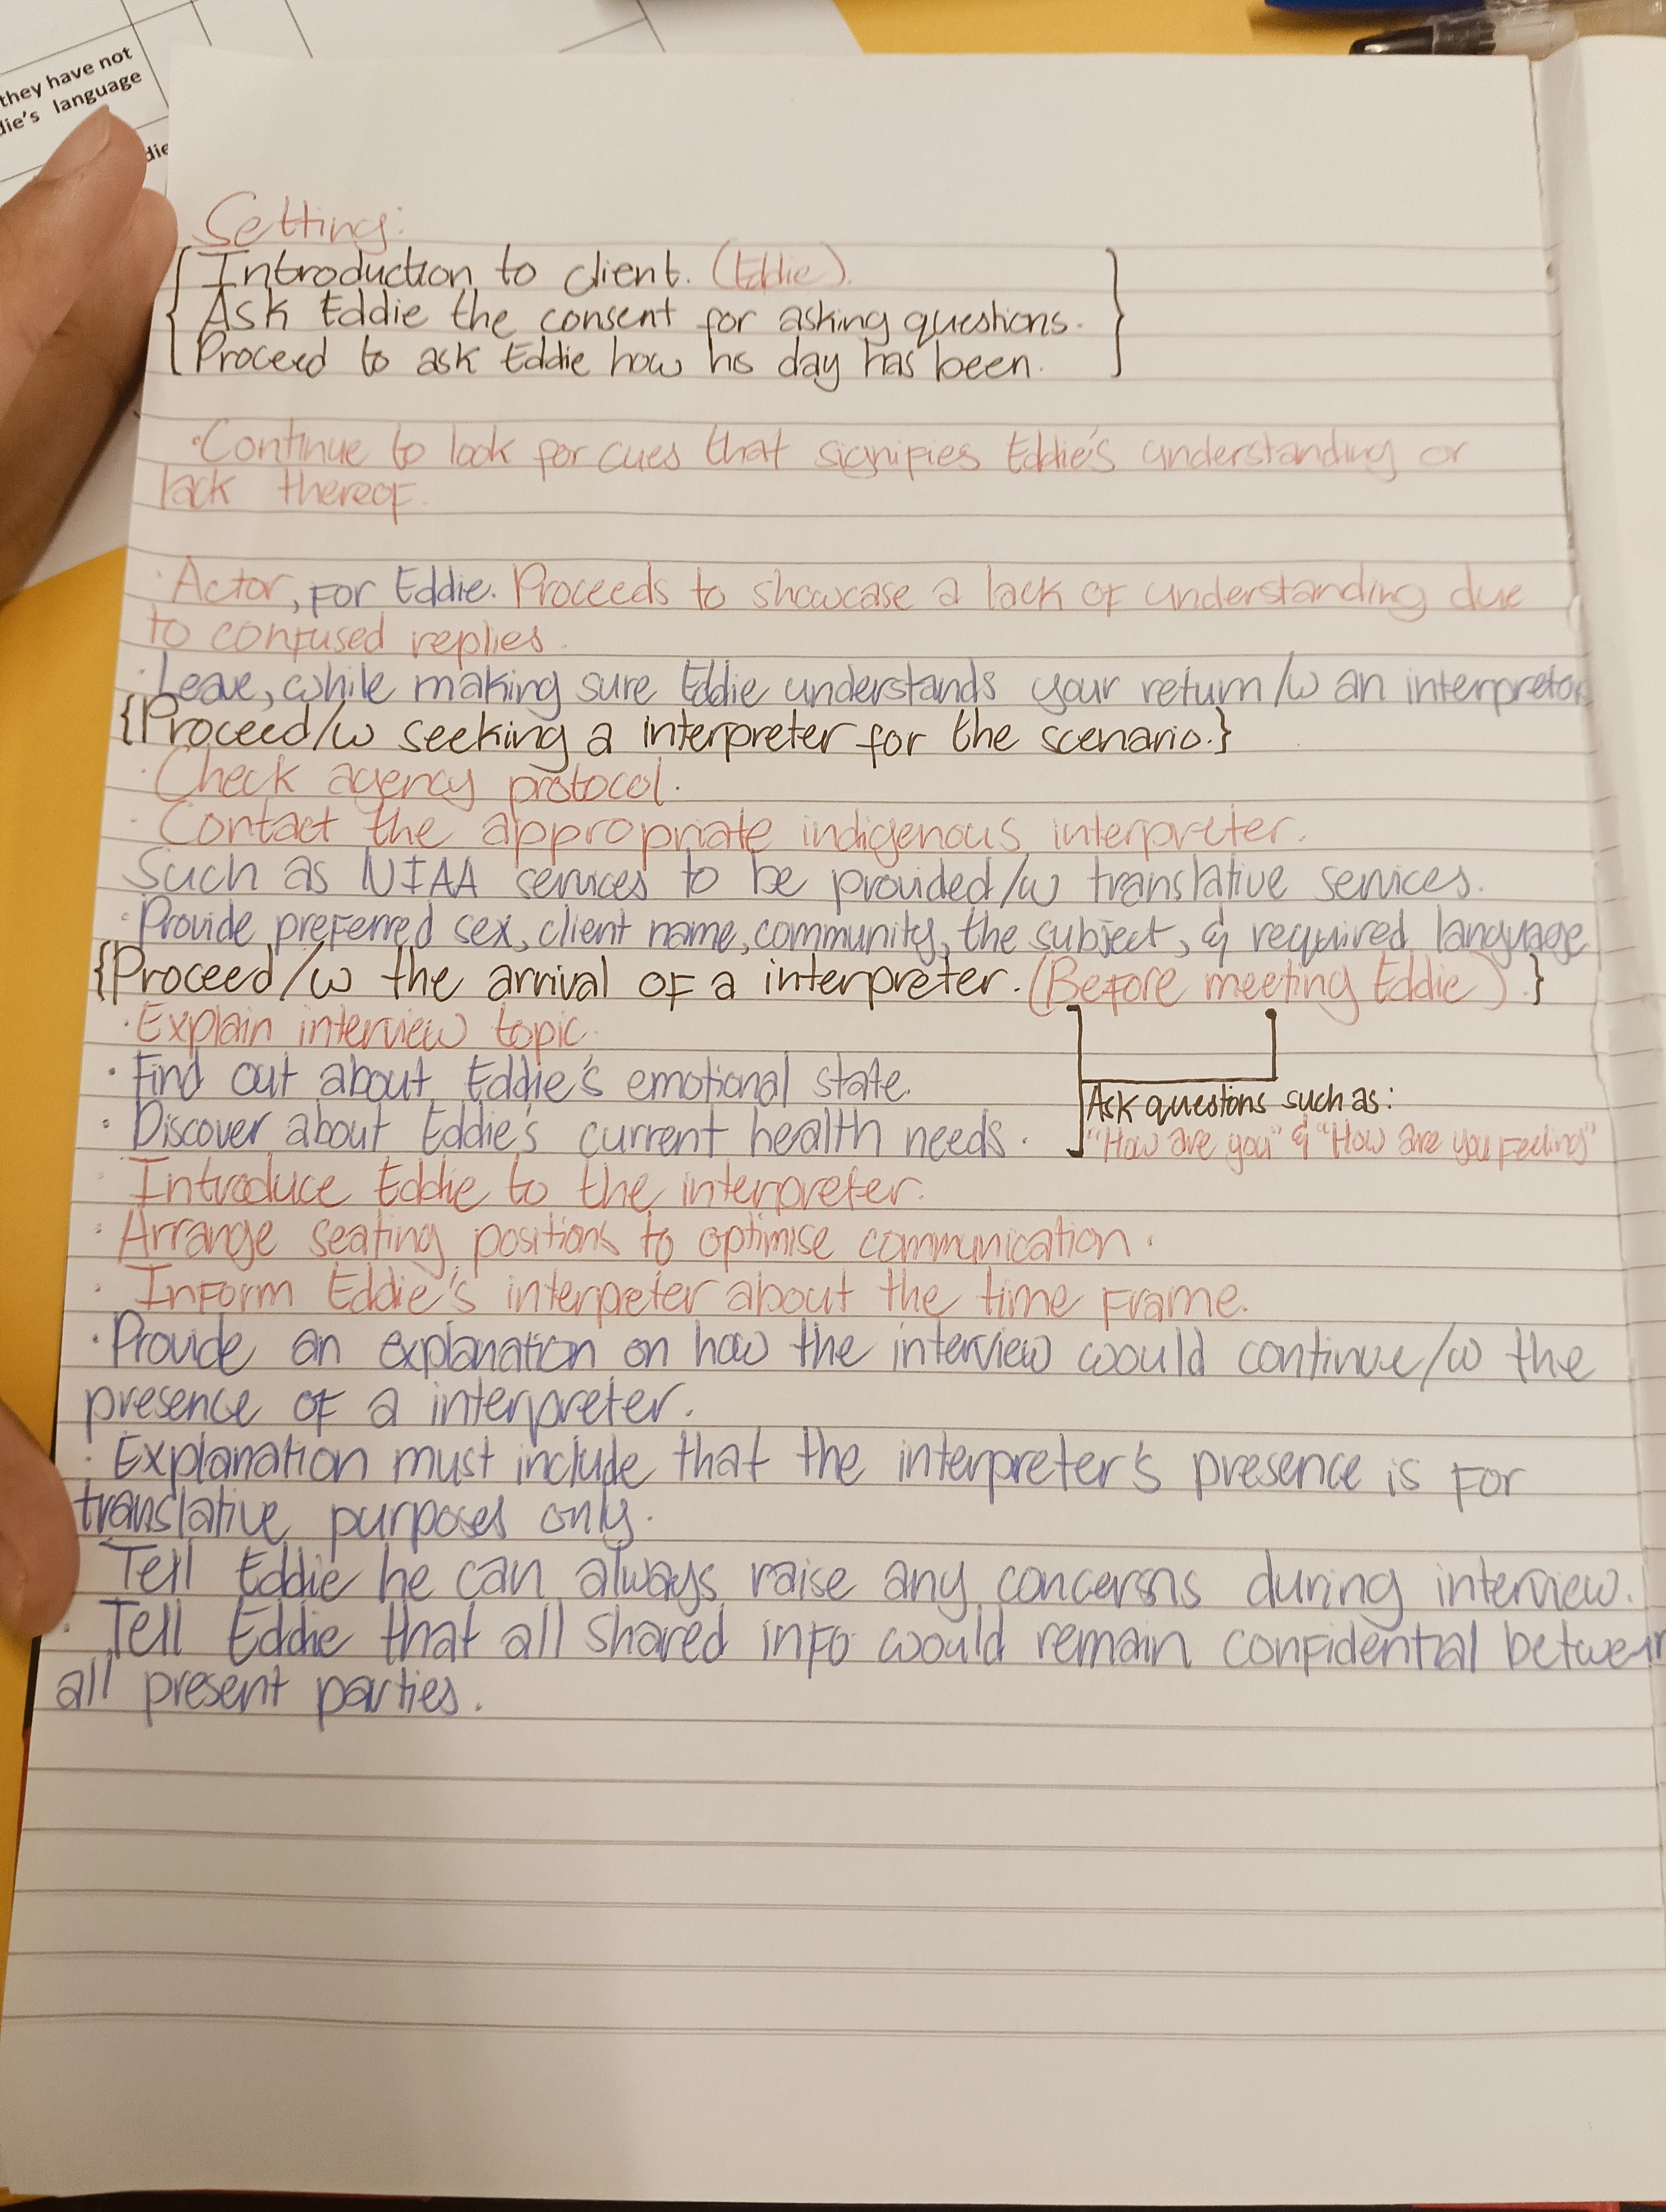 they have not
die's language
die
Setting:
Introduction to client. (Eddie).
Ask Eddie the consent for asking questions.
Proceed to ask Eddie how his day has been.
·Continue to look for cues that signifies Eddie's understanding or
lack thereof.
·Actor, for Eddie. Proceeds to showcase a lack of understanding due
to confused replies.
·Leave, while making sure Eddie understands your return /w an interpretor
{Proceed /w seeking a interpreter for the scenario.}
·Check agency protocol.
·Contact the appropriate indigenous interpreter.
Such as NIAA services to be provided /w translative services.
·Provide preferred sex, client name, community, the subject, & required language
{Proceed /w the arrival of a interpreter. (Before meeting Eddie).}
·Explain interview topic.
·Find out about Eddie's emotional state.
Ask questions such as:
·Discover about Eddie's current health needs.
"How are you" & "How are you feeling"
·Introduce Eddie to the interpreter.
·Arrange seating positions to optimise communication.
·Inform Eddie's interpreter about the time frame.
·Provide an explanation on how the interview would continue /w the
presence of a interpreter.
·Explanation must include that the interpreter's presence is for
translative purposes only.
Tell Eddie he can always raise any concerns during interview.
·Tell Eddie that all shared info would remain confidential between
all present parties.